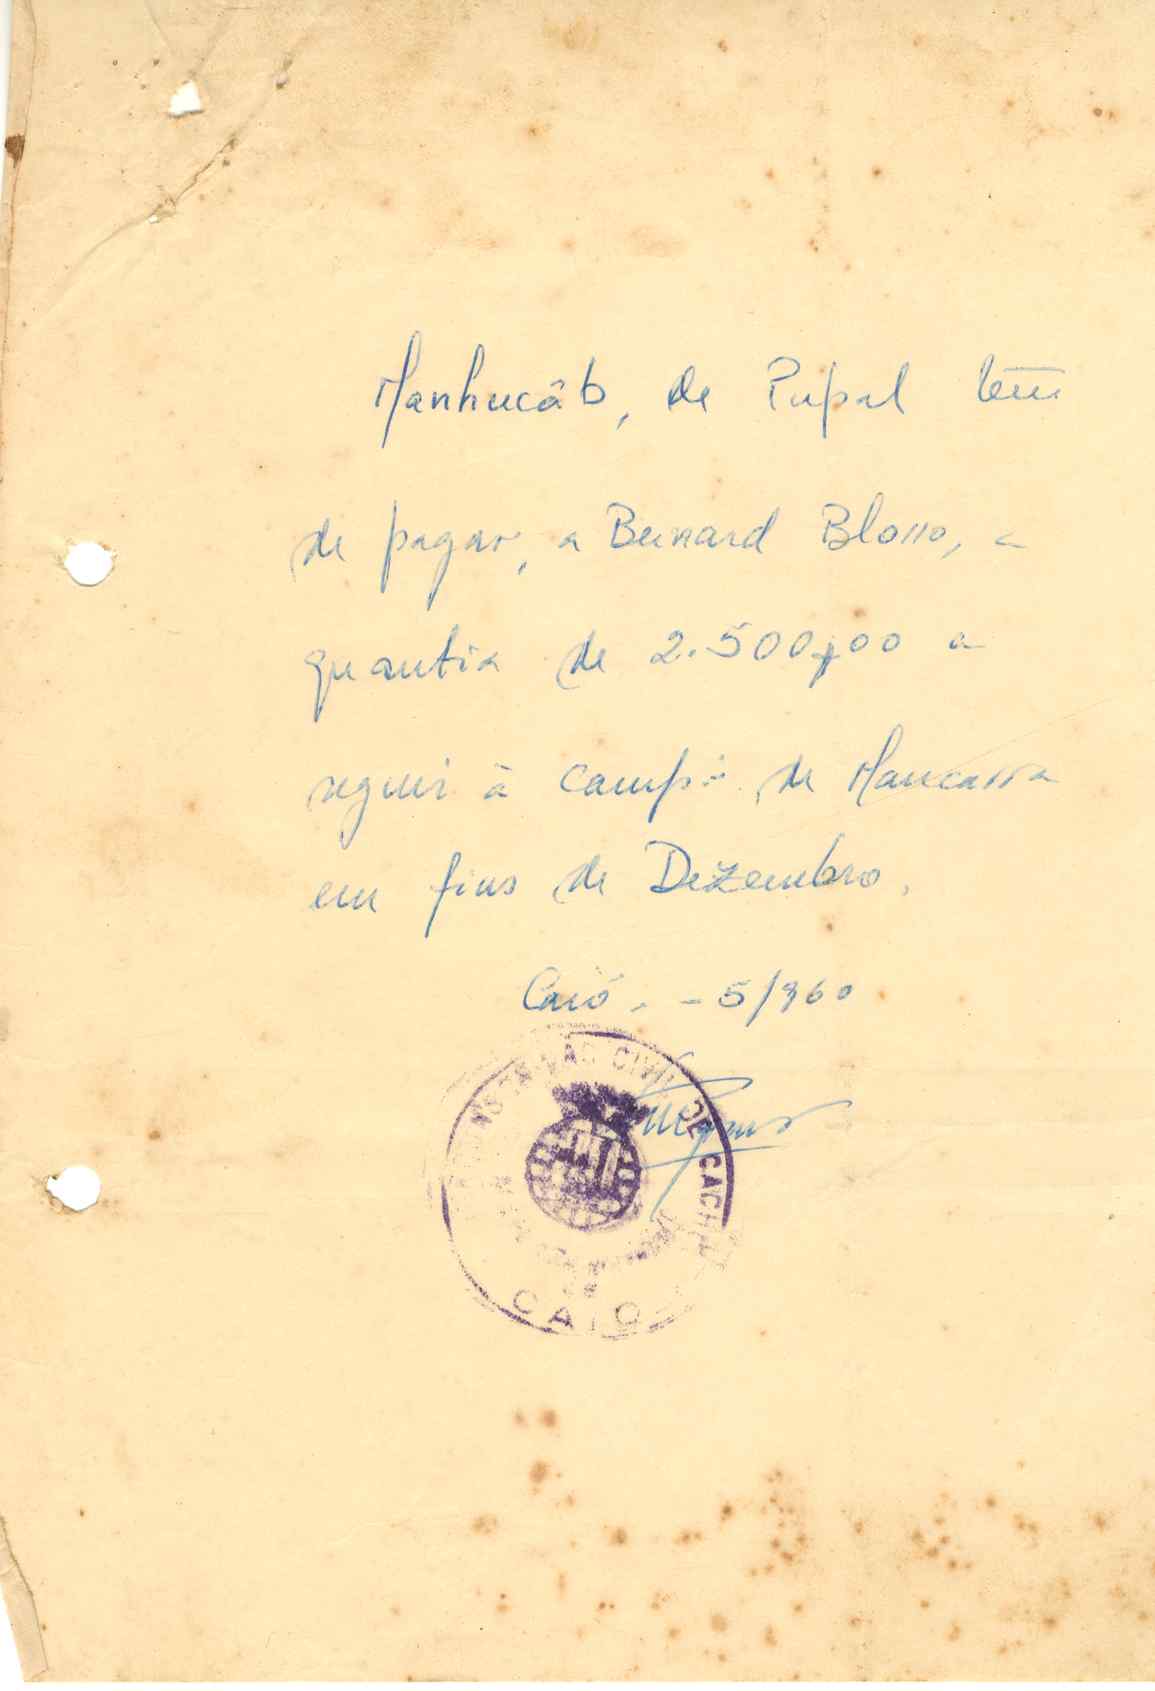 Manhucâb, de Pupal tem
de pagar, a Bernard Blosso, a
quantia de 2.500$00 a
seguir à campª de Mancarra
em fins de Dezembro.
Caió - - 5/960
CIVIL DE CACHEU
CAIO